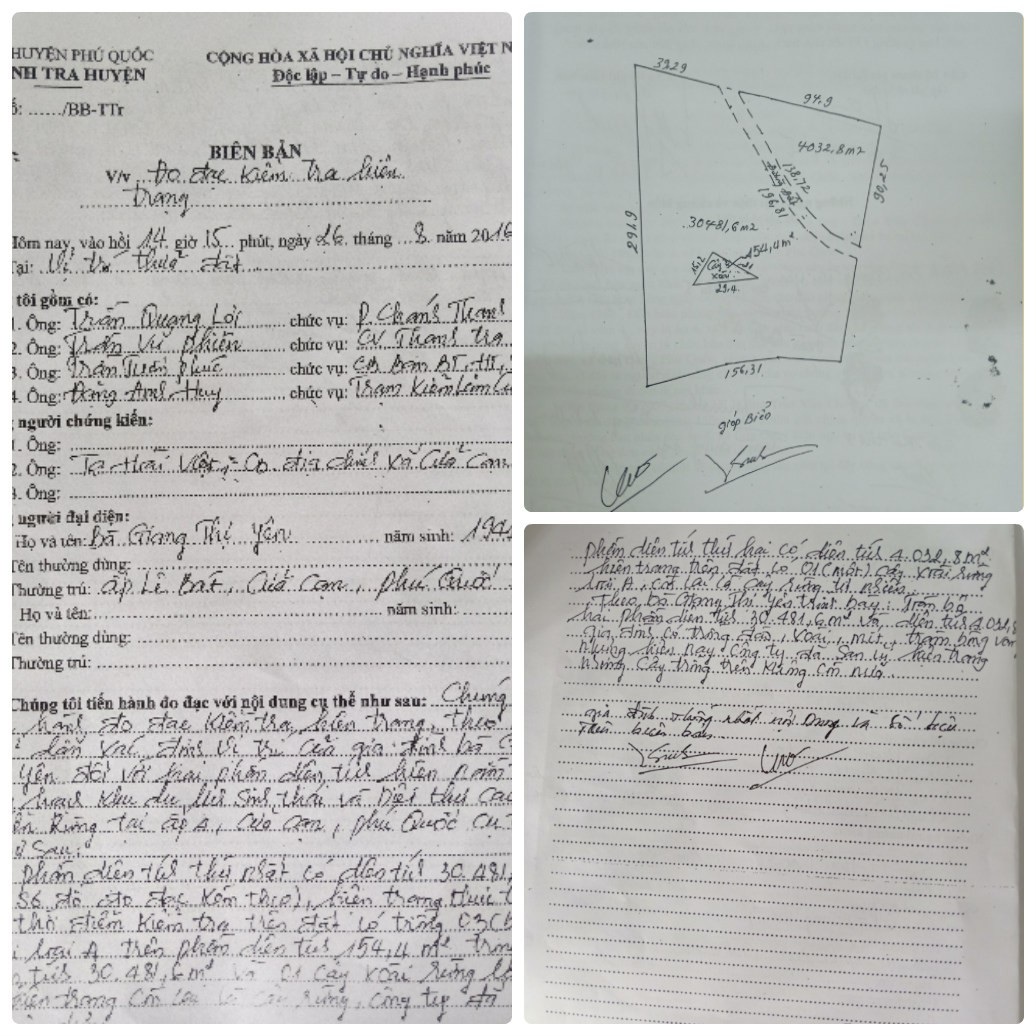 HUYỆN PHÚ QUỐC
NH TRA HUYỆN
CỘNG HÒA XÃ HỘI CHỦ NGHĨA VIỆT N
Độc lập – Tự do – Hạnh phúc
ố: ....../BB-TTr
BIÊN BẢN
V/v Đo đạc kiểm tra hiện
trạng
Hôm nay, vào hồi 14 giờ 15 phút, ngày 26 tháng 8 năm 2016
Tại: Vị trí thửa đất
tôi gồm có:
1. Ông: Trần Quang Lời chức vụ: P. Chánh Thanh
2. Ông: Trần Vũ Phiên chức vụ: CV Thanh tra
3. Ông: Trần Tuấn Phúc chức vụ: CB Ban BT, HT,
4. Ông: Đặng Anh Huy chức vụ: Trạm Kiểm Lâm
người chứng kiến:
1. Ông:
2. Ông: Tạ Thái Việt - CB địa chính xã Cửa Cạn
3. Ông:
người đại diện:
Họ và tên: Bà Giang Thị Yên năm sinh: 194
Tên thường dùng:
Thường trú: ấp Lê Bát, Cửa Cạn, Phú Quốc
Họ và tên: năm sinh:
Tên thường dùng:
Thường trú:
Chúng tôi tiến hành đo đạc với nội dung cụ thể như sau: Chúng
hành đo đạc kiểm tra hiện trạng theo
dẫn xác định vị trí của gia đình bà
Yên đối với hai phần diện tích hiện nằm
khu du lịch sinh thái và Biệt thự cao
Rừng tại ấp 4, Cửa Cạn, Phú Quốc cụ
sau:
phần diện tích thứ nhất có diện tích 30.481,
sơ đồ đo đạc kèm theo), hiện trạng thực t
thời điểm kiểm tra trên đất có trồng 03 (b
loại A trên phần diện tích 154,4 m² tron
tích 30.481,6 m² và 01 cây xoài rừng
hiện trạng còn lại là cây rừng, công ty đã
33,29
94,9
4032,8 m2
90,25
138,72
196,81
291,9
30481,6 m2
154,4 m²
15,2
Cây
xoài
29,4
156,31
giáp Biển
phần diện tích thứ hai có diện tích 4.032,8 m²
hiện trạng trên đất có 01 (một) cây xoài rừng
loại A, còn lại là cây rừng tự nhiên.
Theo bà Giang Thị Yên trình bày: toàn bộ
hai phần diện tích 30.481,6 m² và diện tích 4.032,8
gia đình có trồng đào, xoài, mít, tràm bông vàn
nhưng hiện nay công ty đã san ủi hiện trạng
những cây trồng trên không còn nữa.
gia đình thống nhất nội dung và số liệu
trên biên bản